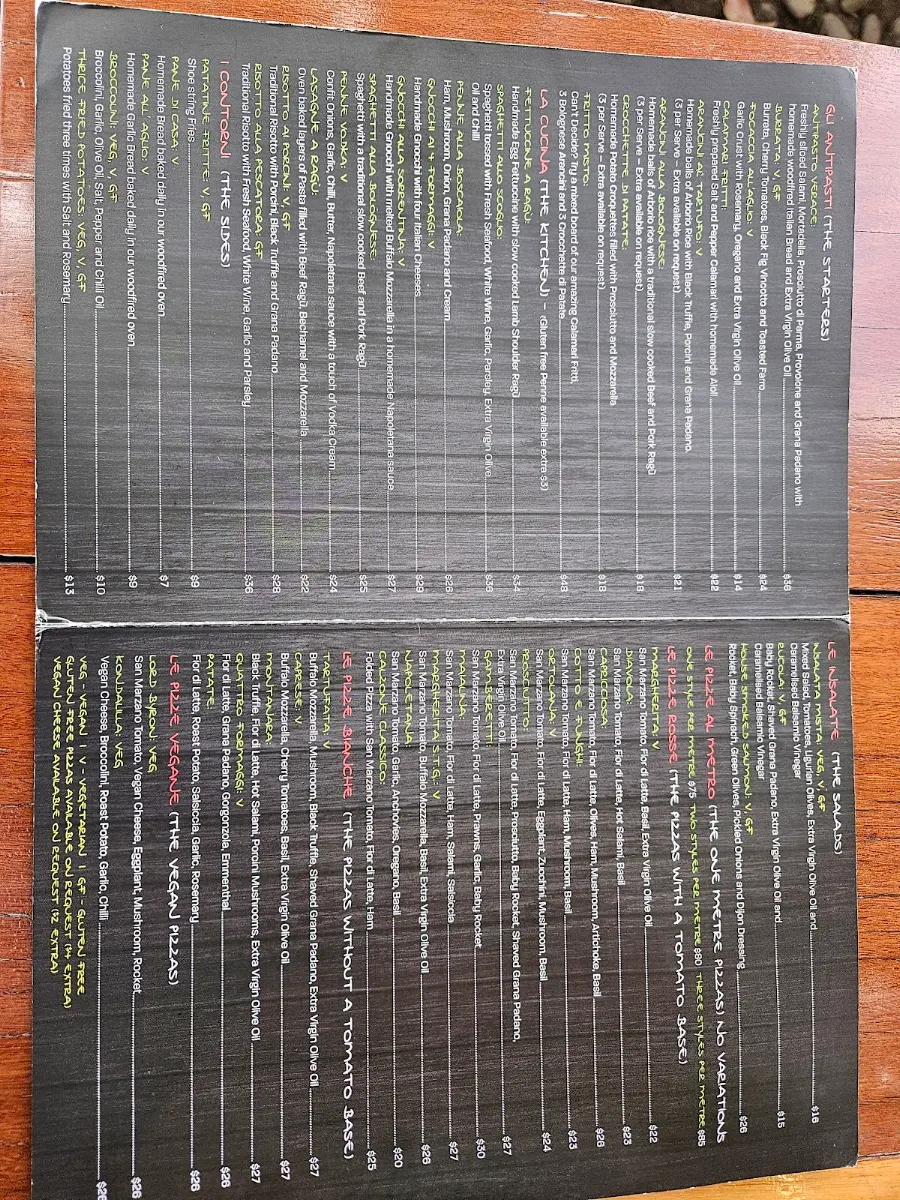 GLI ANTIPASTI (THE STARTERS)
ANTIPASTO VERACE:
Freshly sliced Salami, Mortadella, Prosciutto di Parma, Provolone and Grana Padano with
homemade woodfired Italian Bread and Extra Virgin Olive Oil $36
BURRATA: V
Burrata, Cherry Tomatoes, Black Fig Vincotto and Toasted Farro $24
FOCACCIA ALL'AGLIO: V
Garlic Crust with Rosemary, Oregano and Extra Virgin Olive Oil $14
CALAMARI FRITTI:
Freshly prepared Salt and Pepper Calamari with homemade Aioli $22
ARANCINI AL TARTUFO: V
Homemade balls of Arborio Rice with Black Truffle, Porcini and Grana Padano.
(3 per Serve - Extra available on request) $21
ARANCINI ALLA BOLOGNESE:
Homemade balls of Arborio rice with a traditional slow cooked Beef and Pork Ragù
(3 per Serve - Extra available on request) $18
CROCCHETTE DI PATATE:
Homemade Potato Croquettes filled with Prosciutto and Mozzarella
(3 per Serve - Extra available on request) $18
FRITTO MISTO:
Can't decide? Try a mixed board of our amazing Calamari Fritti,
3 Bolognese Arancini and 3 Crocchette di Patate $48
LA CUCINA (THE KITCHEN) - (Gluten free Penne available extra $3)
FETTUCCINE A RAGÙ:
Handmade Egg Fettuccine with slow cooked Lamb Shoulder Ragù $34
SPAGHETTI ALLO SCOGLIO:
Spaghetti tossed with Fresh Seafood, White Wine, Garlic, Parsley, Extra Virgin Olive
Oil and Chilli $36
PENNE ALLA BOSCAIOLA:
Ham, Mushroom, Onion, Grana Padano and Cream $26
GNOCCHI AI 4 FORMAGGI: V
Handmade Gnocchi with four Italian Cheeses $29
GNOCCHI ALLA SORRENTINA: V
Handmade Gnocchi with melted Buffalo Mozzarella in a homemade Napoletana sauce $27
SPAGHETTI ALLA BOLOGNESE:
Spaghetti with a traditional slow cooked Beef and Pork Ragù $25
PENNE VODKA: V
Confit Onions, Garlic, Chilli, butter, Napoletana sauce with a touch of Vodka Cream $24
LASAGNE A RAGÙ:
Oven baked layers of Pasta filled with Beef Ragù, Bechamel and Mozzarella $22
RISOTTO AI PORCINI: V, GF
Traditional Risotto with Porcini, Black Truffle and Grana Padano $28
RISOTTO ALLA PESCATORA: GF
Traditional Risotto with Fresh Seafood, White Wine, Garlic and Parsley $36
I CONTORNI (THE SIDES)
PATATINE FRITTE: V, GF
Shoe string Fries $9
PANE DI CASA: V
Homemade Bread baked daily in our woodfired oven $7
PANE ALL' AGLIO: V
Homemade Garlic Bread baked daily in our woodfired oven $9
BROCCOLINI: VEG, V, GF
Broccolini, Garlic, Olive Oil, Salt, Pepper and Chilli Oil $10
THRICE FRIED POTATOES: VEG, V, GF
Potatoes fried three times with Salt and Rosemary $13
LE INSALATE (THE SALADS)
INSALATA MISTA: VEG, V, GF
Mixed Salad, Tomatoes, Ligurian Olives, Extra Virgin Olive Oil and
Caramelised Balsamic Vinegar $16
RUCOLA: V, GF
Baby Rocket, Shaved Grana Padano, Extra Virgin Olive Oil and
Caramelised Balsamic Vinegar $15
HOUSE SMOKED SALMON: V, GF
Rocket, Baby Spinach, Green Olives, Pickled Onions and Dijon Dressing $26
LE PIZZE AL METRO (THE ONE METRE PIZZAS) NO VARIATIONS
ONE STYLE PER METRE $75 TWO STYLES PER METRE $80 THREE STYLES PER METRE $85
LE PIZZE ROSSE (THE PIZZAS WITH A TOMATO BASE)
MARGHERITA: V
San Marzano Tomato, Fior di Latte, Basil, Extra Virgin Olive Oil $22
DIAVOLA:
San Marzano Tomato, Fior di Latte, Hot Salami, Basil $23
CAPRICCIOSA:
San Marzano Tomato, Fior di Latte, Olives, Ham, Mushroom, Artichoke, Basil $26
COTTO E FUNGHI:
San Marzano Tomato, Fior di Latte, Ham, Mushroom, Basil $23
ORTOLANA: V
San Marzano Tomato, Fior di Latte, Eggplant, Zucchini, Mushroom, Basil $24
PROSCIUTTO:
San Marzano Tomato, Fior di Latte, Prosciutto, Baby Rocket, Shaved Grana Padano,
Extra Virgin Olive Oil $27
GAMBERETTI:
San Marzano Tomato, Fior di Latte, Prawns, Garlic, Baby Rocket $30
MAIALINA:
San Marzano Tomato, Fior di Latte, Ham, Salami, Salsiccia $27
MARGHERITA S.T.G.: V
San Marzano Tomato, Buffalo Mozzarella, Basil, Extra Virgin Olive Oil $26
NAPOLETANA:
San Marzano Tomato, Garlic, Anchovies, Oregano, Basil $20
CALZONE CLASSICO:
Folded Pizza with San Marzano Tomato, Fior di Latte, Ham $25
LE PIZZE BIANCHE (THE PIZZAS WITHOUT A TOMATO BASE)
TARTUFATA: V
Buffalo Mozzarella, Mushroom, Black Truffle, Shaved Grana Padano, Extra Virgin Olive Oil $27
CAPRESE: V
Buffalo Mozzarella, Cherry Tomatoes, Basil, Extra Virgin Olive Oil $27
MONTANARA:
Black Truffle, Fior di Latte, Hot Salami, Porcini Mushrooms, Extra Virgin Olive Oil $27
QUATTRO FORMAGGI: V
Fior di Latte, Grana Padano, Gorgonzola, Emmenthal $26
PATATE:
Fior di Latte, Roast Potato, Salsiccia, Garlic, Rosemary $26
LE PIZZE VEGANE (THE VEGAN PIZZAS)
LORD BYRON: VEG
San Marzano Tomato, Vegan Cheese, Eggplant, Mushroom, Rocket $26
KONDALILLA: VEG
Vegan Cheese, Broccolini, Roast Potato, Garlic, Chilli $26
VEG - VEGAN | V - VEGETARIAN | GF - GLUTEN FREE
GLUTEN FREE PIZZAS AVAILABLE ON REQUEST ($4 EXTRA)
VEGAN CHEESE AVAILABLE ON REQUEST ($2 EXTRA)